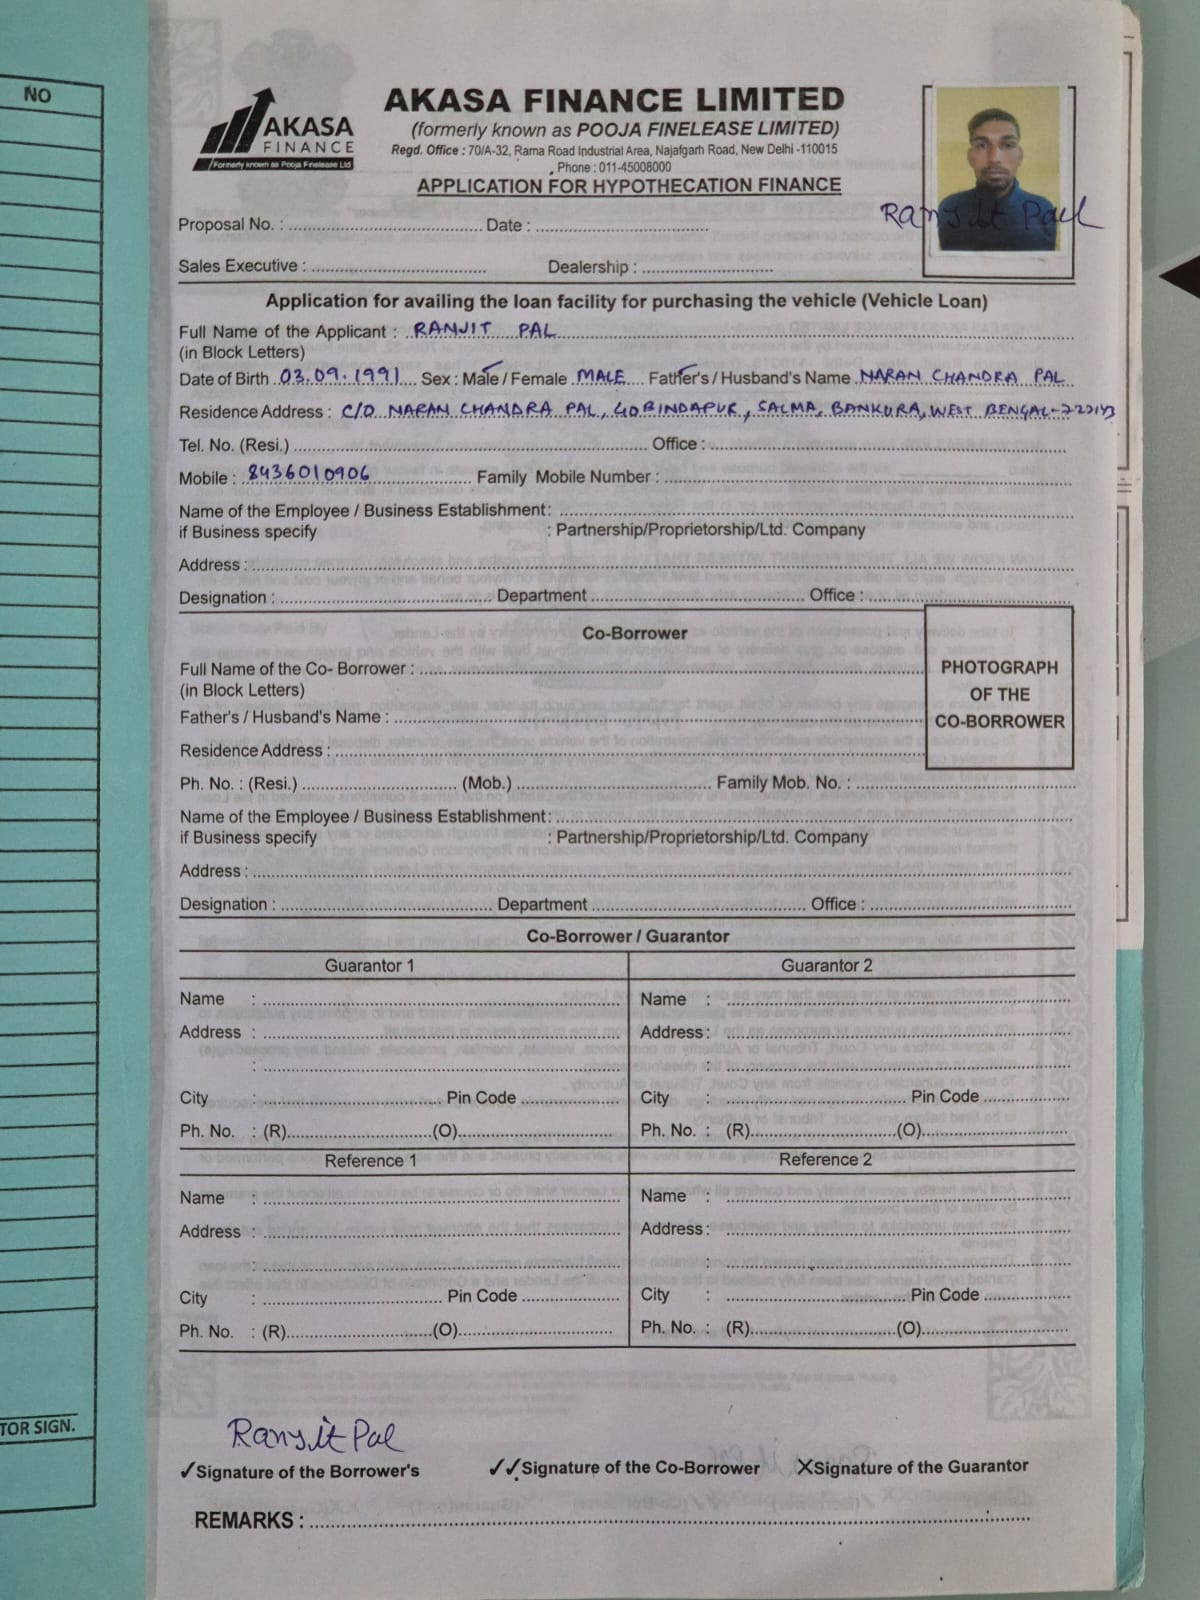 NO
TOR SIGN.
AKASA
FINANCE
Formerly known as Pooja Finelease Ltd
AKASA FINANCE LIMITED
(formerly known as POOJA FINELEASE LIMITED)
Regd. Office : 70/A-32, Rama Road Industrial Area, Najafgarh Road, New Delhi -110015
Phone : 011-45008000
APPLICATION FOR HYPOTHECATION FINANCE
Ranjit Pal
Proposal No. : Date :
Sales Executive : Dealership :
Application for availing the loan facility for purchasing the vehicle (Vehicle Loan)
Full Name of the Applicant : RANJIT PAL
(in Block Letters)
Date of Birth 03.09.1991 Sex : Male / Female MALE Father's / Husband's Name NARAN CHANDRA PAL
Residence Address : C/O NARAN CHANDRA PAL, GOBINDAPUR, SALMA, BANKURA, WEST BENGAL-722143
Tel. No. (Resi.) Office :
Mobile : 8436010906 Family Mobile Number :
Name of the Employee / Business Establishment:
if Business specify : Partnership/Proprietorship/Ltd. Company
Address :
Designation : Department Office :
Co-Borrower
Full Name of the Co- Borrower :
(in Block Letters)
Father's / Husband's Name :
Residence Address :
PHOTOGRAPH
OF THE
CO-BORROWER
Ph. No. : (Resi.) (Mob.) Family Mob. No. :
Name of the Employee / Business Establishment:
if Business specify : Partnership/Proprietorship/Ltd. Company
Address :
Designation : Department Office :
Co-Borrower / Guarantor
Guarantor 1 Guarantor 2
Name : Name :
Address : Address :
: :
City : Pin Code City : Pin Code
Ph. No. : (R) (O) Ph. No. : (R) (O)
Reference 1 Reference 2
Name : Name :
Address : Address :
: :
City : Pin Code City : Pin Code
Ph. No. : (R) (O) Ph. No. : (R) (O)
Ranjit Pal
✓Signature of the Borrower's ✓✓Signature of the Co-Borrower XSignature of the Guarantor
REMARKS :